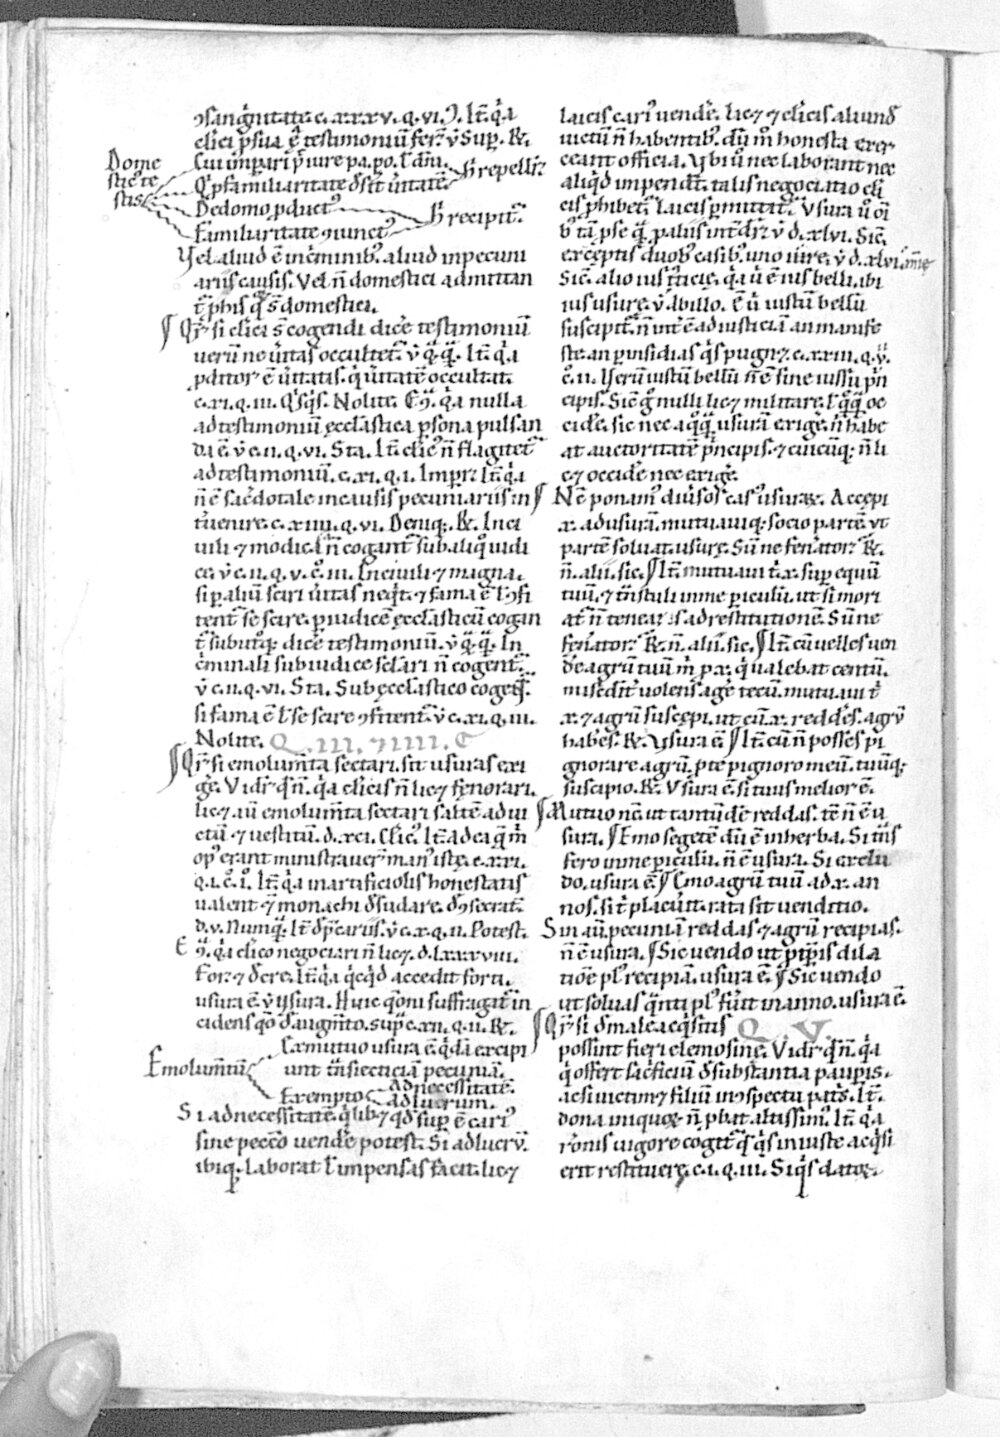 ɔsang̃nitate. c. xxxv. q. vi. ꝯ. It̃. q̇a
clici ꝑsua ẽ testimoniũ fer̃. ṽ Sup̱. ⁊c.
Domestice testis
Cui im̃pari p̃ iure pa. po. ł dñi
Q̇ ꝑ familiaritate d̃sit̃ ũitatẽ
h̃ repellit̃
De domo ꝓducit᷒
Familiaritate ɔiunct᷒
h̃ recipit̃.
Vel aliud ẽ in c̃minib᷒. aliud in pecuni
ariis causis. Vel ñ domestici admittan
t̃ ꝓ his q̇ s̃ domestici.
¶ Qr̃ si clici s̃ cogendi dic̃e testimoniũ
uerũ ne ũitas occultet̃. ṽ q̃.q̃. It̃. q̇a
ꝓditor ẽ ũitatis. q̇ ũitatẽ occultat.
c. xi. q. iii. Q̇sq̇s. Nolite. Eꝯ̃. q̇a nulla
ad testimoniũ ęcclastica ꝑsona pulsan
da ẽ ṽ c. ii. q. vi. Sta. It̃. clic᷒ ñ flagitet̃
ad testimoniũ. c. xi. q. i. Impr̃. It̃. q̇a
ñ ẽ sac̃dotale in causis pecuniariis in
t̃uenire. c. xiiii. q. vi. Deniq;. ⁊c. In ci
uili ⁊ modica ñ cogant̃ sub aliq̊ iudi
ce. ṽ c. ii. q. v. c̊. iii. In ciuili ⁊ magna.
si ꝑ aliũ sciri ũitas neq̇t. ⁊ fama ẽ ł ɔfi
tent̃ se scire. ꝑ iudicẽ ęcclasticũ cogan
t̃ sub utq̊; dic̃e testimoniũ. ṽ q̃.q̃. In
c̃minali sub iudice sclari ñ cogent̃.
ṽ c. ii. q. vi. Sta. Sub ęcclastico coget̃
si fama ẽ ł se scire ɔfitent̃. ṽ c. xi. q. iii.
Nolite. Q. III. ⁊ IIII. C
¶ Qr̃ si emolum̃ta sectari. sit usuras exi
ge. Vidr̃ q̊ ñ. q̇a clicis ñ lic⁊ fęnorari.
lic⁊ aũ emolum̃ta sectari saltẽ ad ui
ctũ ⁊ uestitũ. d. xci. Clic᷒. It̃. ad ea q̃ m̃
op᷒ erant ministrauer̃ man᷒ istę. c. xxi.
q. i. c̊. i᷒. It̃. q̇a in artificiolis honestatis
ualent ⁊̃ monachi d̃sudare. d. ɔsecrat̃.
d. v. Numq̃. It̃. d̃ p̃cariis. ṽ c. x. q. ii. Potest.
Eꝯ̃. q̇a clico negociari ñ lic⁊. d. lxxxviii.
For̃. ⁊ d̃cre. It̃. q̇a q̇cq̇d accedit sorti.
usura ẽ. ṽ ysura. Huic q̃oni suffragat̃ in
cidens q̃o d̃ augm̃to. sup̱ c. xii. q. ii. ⁊c.
Emolum̃tũ
Ex mutuo usura ẽ. q̇dã excipi
unt t̃nsiecticiã pecuniã.
Ex empto
ad necessitatẽ.
ad lucrum.
Si ad necessitatẽ. q̇slib⁊ q̇d̃ sup̱ ẽ cari᷒
sine pecc̃o uend̃e potest. Si ad lucrũ.
ibiq̃. laborat ł impensas facit. lic⁊
laicis cari᷒ vend̃e. lic⁊ ⁊ clicis aliund̃
uictũ ñ habentib᷒. dũ m̊ honesta exer
ceant officia. Vbi ũ nec laborant nec
aliq̇d impend̃t. talis negociatio cli
cis ꝓhibet̃. laicis ꝑmittit̃. Vsura ũ oĩ
b᷒ tã ꝑ se q̃. ꝑ alius int̃dr̃. ṽ d. xlvi. Sic̃.
exceptis duob᷒ casib᷒. uno iure. ṽ d. xlvi. ime
Sic̃. alio ius t̃ticię. q̇a ũ ẽ ius belli. ibi
ius usurę. ṽ Abillo. Eṽ ũ iustũ bellũ
suscipit̃. ñ int̃ẽ ad iusticiã an manife
ste. an ꝑ insidias q̇s pugn⁊. c. xxiii. q. ṽ.
c̊. ii. Verũ iustũ bellũ ñ ẽ sine iussu p̃n
cipis. Sic̃ g̊ nulli lic⁊ militare. ł q̃q̃ oc
cid̃e. sic nec a q̊q̃ usurã exig̃e. ñ habe
at auctoritatẽ p̃ncipis. ⁊ cuicũq;. ñ li
c⁊ occid̃e nec exig̃e.
¶ Nc̃ ponam᷒ diũsos cas᷒ usurar̃. Accepi
.x. ad usurã. mutuauiq; socio partẽ. vt
partẽ soluat. usurę. Sũ ne fen̄ator̃. ⁊c.
ñ. alii. sic. ¶ It̃. mutuaui t̃. x. sup̱ equũ
tuũ. ⁊ t̃nstuli in me ꝑiculũ. ut si mori
at̃ ñ tenear̃ s̃ ad restitutionẽ. Sũ ne
fen̄ator̃. ⁊c. ñ. alii. sic. ¶ It̃. cũ uelles uen
d̃e agrũ tuũ m̃ ꝑ .x. q̇ ualebat centũ.
mis̃ic̃dit̃ uolens ag̃e tecũ. mutuaui t̃
.x. ⁊ agrũ suscępi. ut cũ .x. redd̃es. agrũ
hab̃es. ⁊c. Vsura ẽ. ¶ It̃. cũ ñ posses pi
gnorare agrũ. ꝓ te pignoro meũ. tuũq;
suscipio. ⁊c. Vsura ẽ. si tuus melior ẽ.
¶ Mutuo nẽ. ut tantũd̃e reddas. tẽ ñ ẽ u
sura. ¶ Emo segetẽ dũ ẽ in herba. Si t̃ns
fero in me ꝑiculũ. ñ ẽ usura. Si exclu
do. usura ẽ. ¶ Emo agrũ tuũ ad .x. an
nos. si t̃ placũit. rata sit uenditio.
Sin aũ. pecuniã reddas. ⁊ agrũ recipias.
ñ ẽ usura. ¶ Sic uendo ut ꝓpt̃ ꝑis dila
tioẽ pl᷒ recipiã. usura ẽ. ¶ Sic uendo
ut soluas q̃nti pl᷒ fũit in anno. usura ẽ.
¶ Qr̃ si d̃ male acq̇sitis Q. V
possint fieri elemosinę. Vidr̃ q̊ ñ. q̇a
q̇ offert sac̃ficiũ d̃ substantia pauꝑis.
ac si uictim⁊ filiũ in ɔspectu pat̃s. It̃.
dona iniquor̃ ñ ꝓbat altissim᷒. It̃. q̇a
r̃onis uigore cogit̃ q̇ q̇s iniuste acq̇si
erit restituere. c. i. q. iii. Siq̇s dator̃.